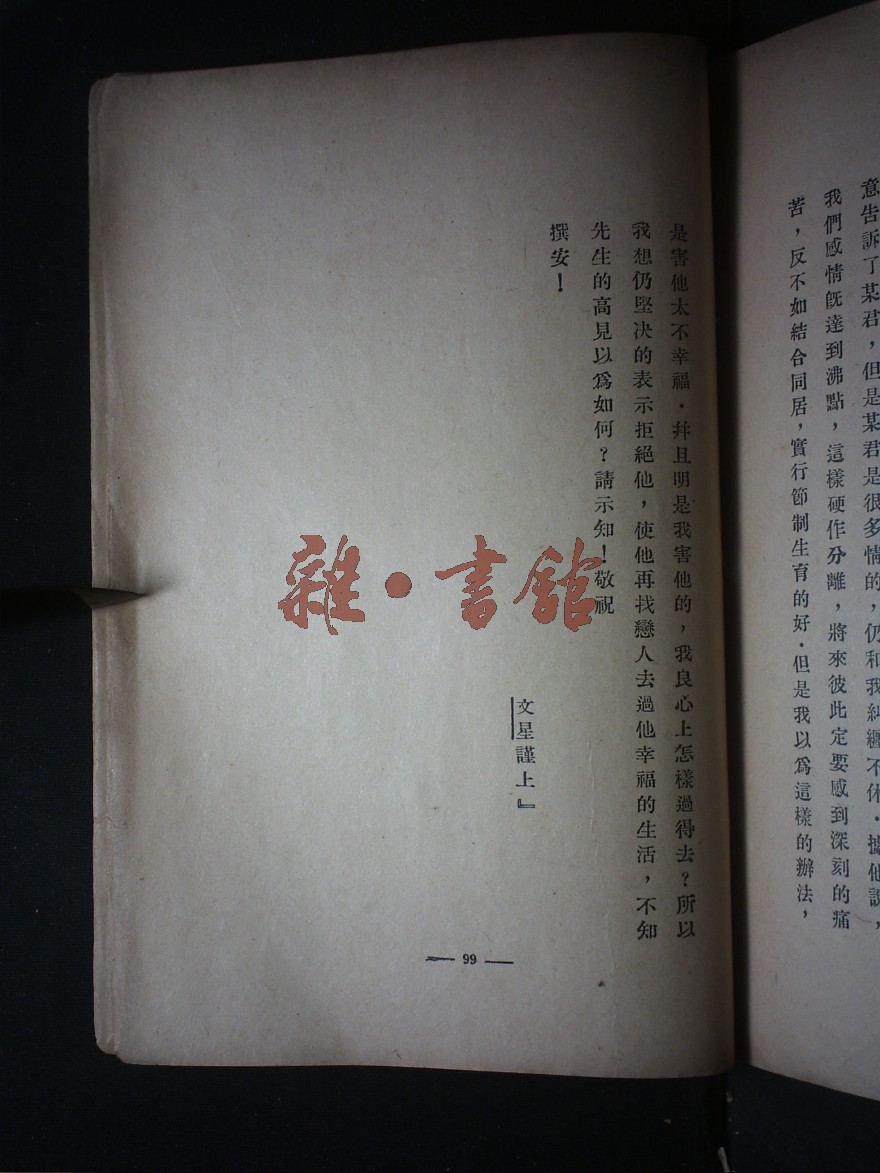 意告訴了某君，但是某君是很多情的，仍和我糾纏不休．據他說，
我們感情旣達到沸點，這樣硬作分離，將來彼此定要感到深刻的痛
苦，反不如結合同居，實行節制生育的好．但是我以爲這樣的辦法，
是害他太不幸福．幷且明是我害他的，我良心上怎樣過得去？所以
我想仍堅决的表示拒絕他，使他再找戀人去過他幸福的生活，不知
先生的高見以爲如何？請示知！敬祝
撰安！
文星謹上』
— 99 —
雜·書館